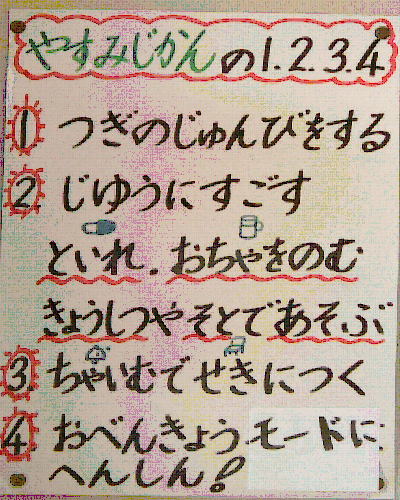 やすみじかんの1.2.3.4
1 つぎのじゅんびをする
2 じゆうにすごす
といれ.おちゃをのむ
きょうしつやそとであそぶ
3 ちゃいむでせきにつく
4 おべんきょうモードに
へんしん!